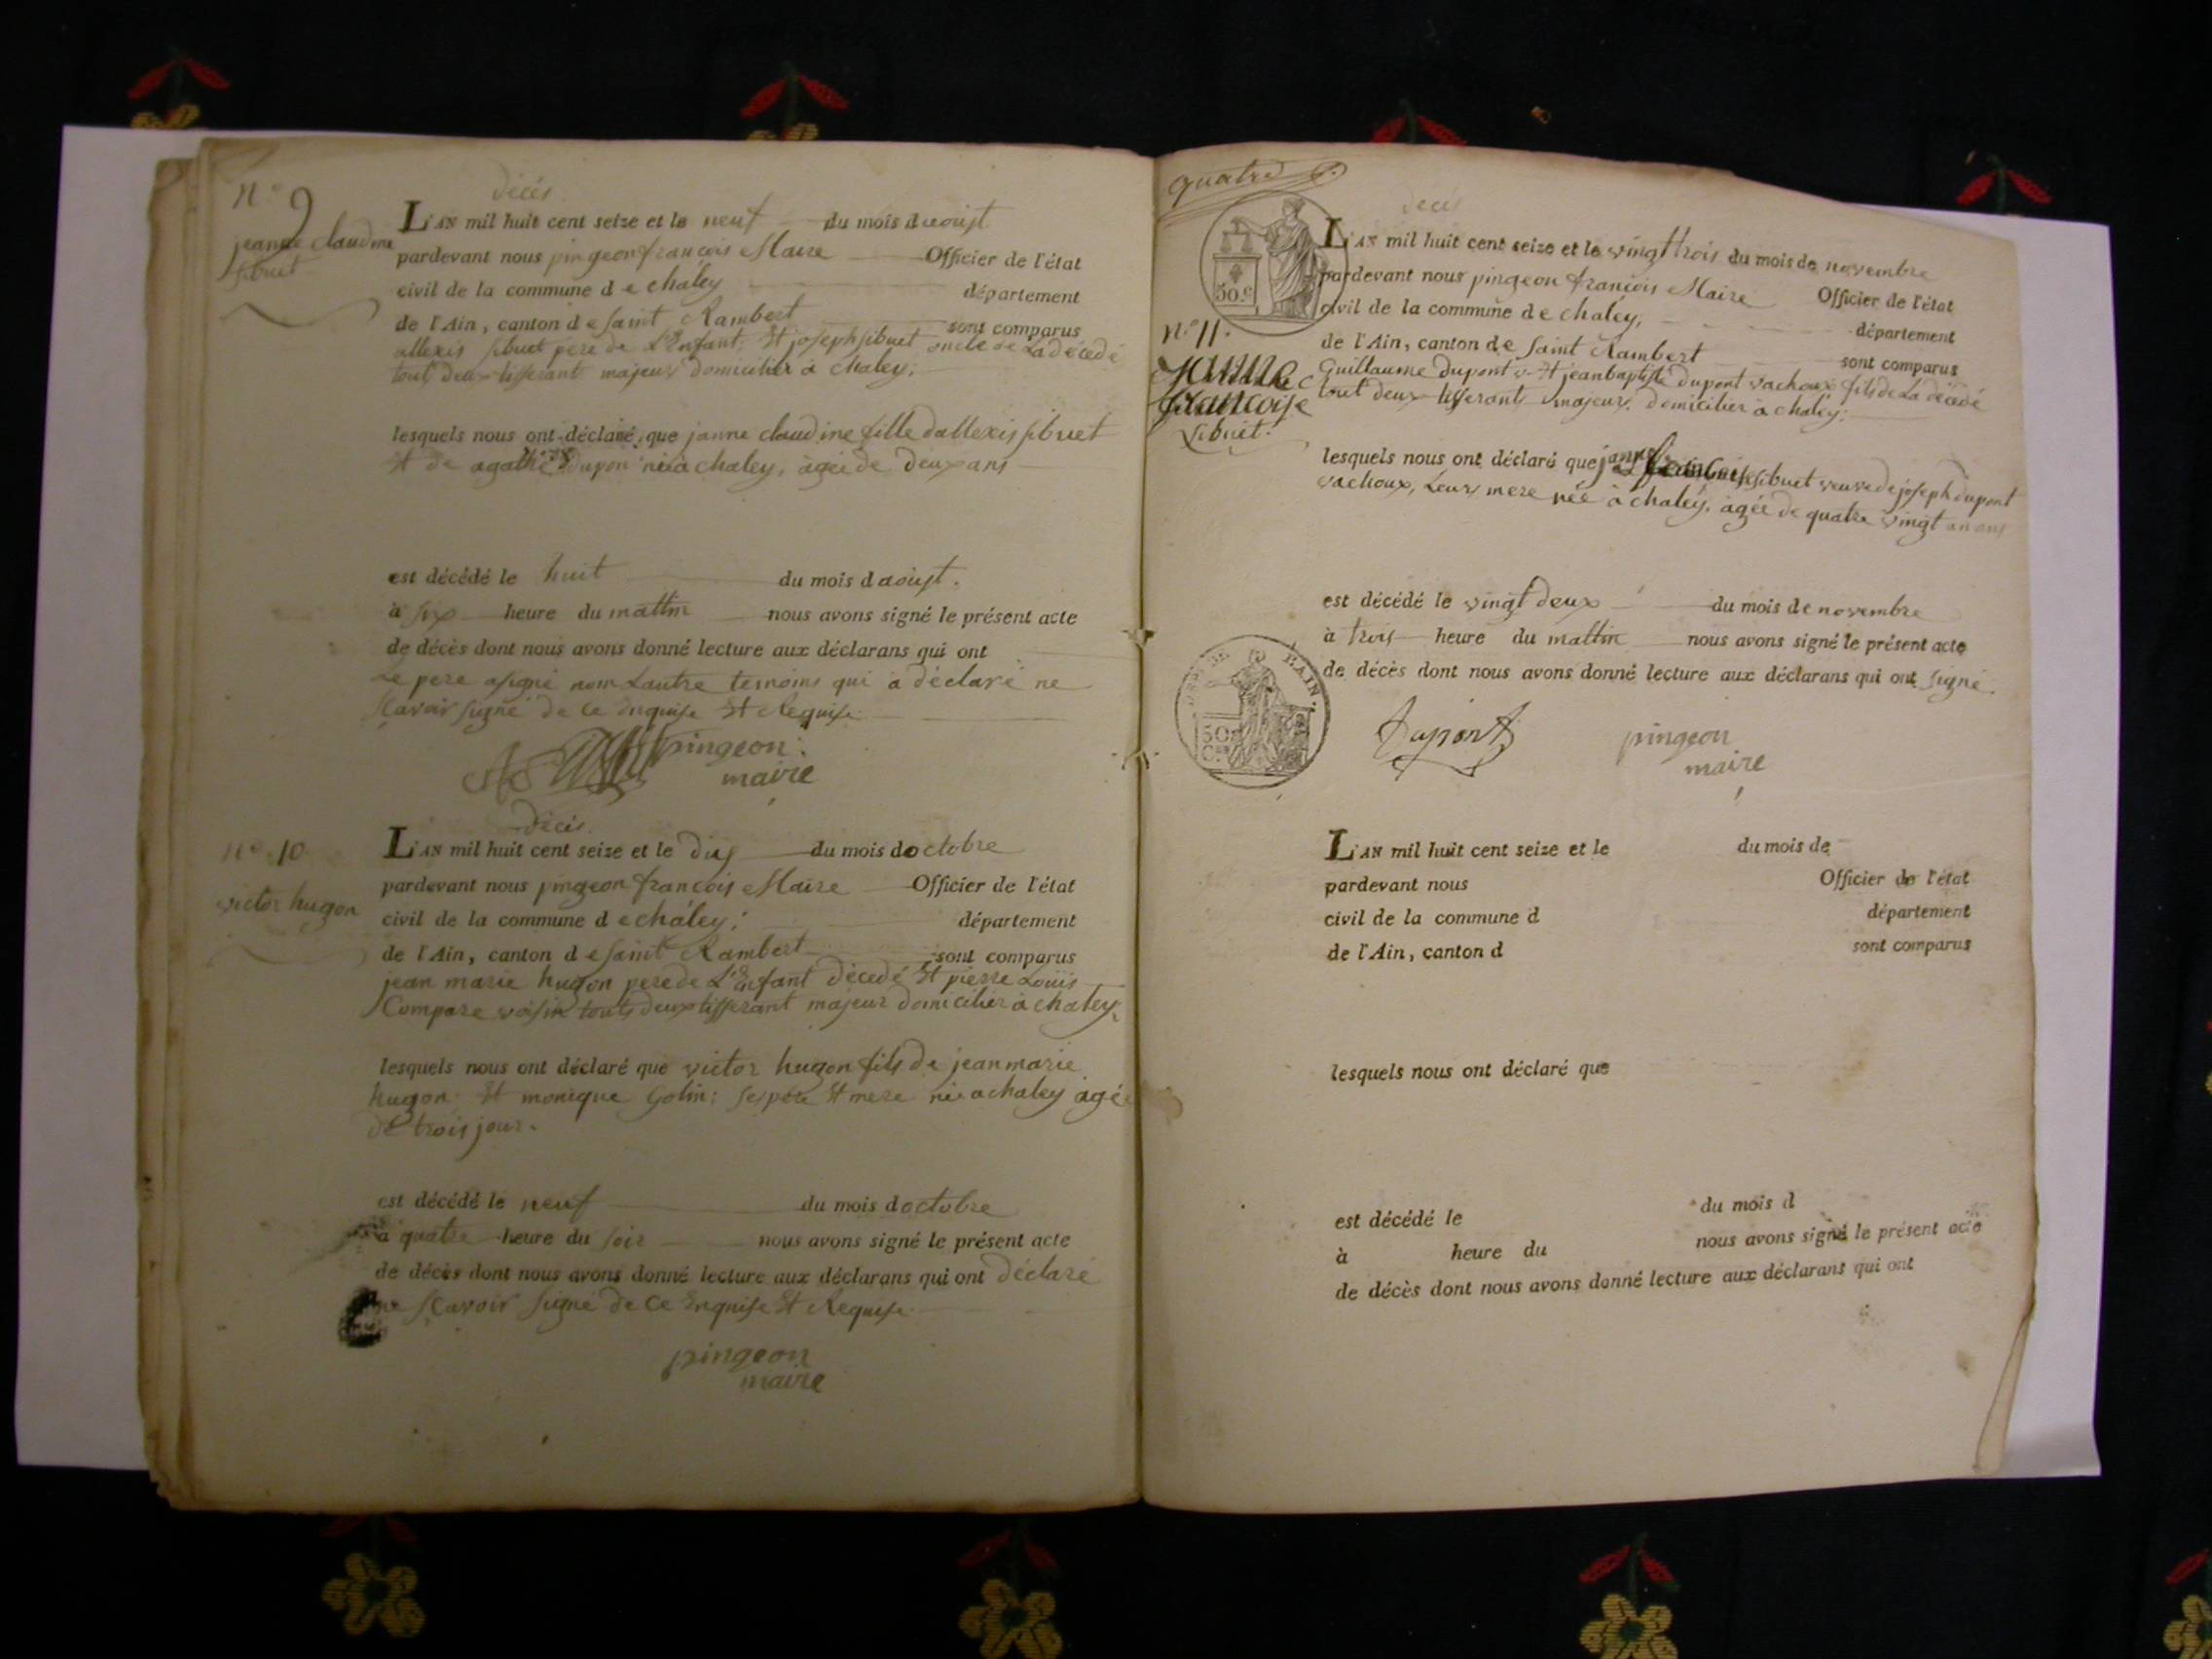 décès
n° 9
jeanne claudine
sibuet
L'AN mil huit cent seize et le neuf du mois d aoust
pardevant nous pingeon françois Maire Officier de l'état
civil de la commune d e chaley département
de l'Ain, canton d e saint Rambert sont comparus
allexis sibuet pere de L'Enfant Et joseph sibuet oncle de La décedé
tout deux tisserant majeur domicilier à chaley.
lesquels nous ont déclaré que janne claudine fille dallexis sibuet
Et de agathe dupon née à chaley, agée de deux ans
est décédé le huit du mois d aoust.
à six heure du mattin nous avons signé le présent acte
de décès dont nous avons donné lecture aux déclarans qui ont
Le pere asigné nom Lautre temoins qui a déclaré ne
scavoir signé de ce Enquise Et Requise
pingeon
maire
décès
n° 10
victor hugon
L'AN mil huit cent seize et le dix du mois d octobre
pardevant nous pingeon françois Maire Officier de l'état
civil de la commune d e chaley; département
de l'Ain, canton d e saint Rambert sont comparus
jean marie hugon pere de L'Enfant décedé Et pierre Louis
Compare voisin touts deux tisserant majeur domicilier à chaley.
lesquels nous ont déclaré que victor hugon fils de jean marie
hugon Et monique Golin; ses pere Et mere née a chaley agé
de trois jour.
est décédé le neuf du mois d octobre
à quatre heure du soir nous avons signé le présent acte
de décès dont nous avons donné lecture aux déclarans qui ont déclaré
ne scavoir signé de ce Enquise Et Requise
pingeon
maire
quatre
décès
50.c
L'AN mil huit cent seize et le vingt trois du mois de novembre
pardevant nous pingeon françois Maire Officier de l'état
civil de la commune d e chaley, département
n° 11.
janne
françoise
sibuet.
de l'Ain, canton d e saint Rambert sont comparus
Guillaume dupont Et jeanbaptiste dupont vachoux fils de La décédé
tout deux tisserants majeurs domicilier à chaley;
lesquels nous ont déclaré que janne françoise sibuet veuve de joseph dupont
vachoux, Leurs mere née à chaley, agée de quatre vingt un ans
est décédé le vingt deux du mois d e novembre
à trois heure du mattin nous avons signé le présent acte
de décès dont nous avons donné lecture aux déclarans qui ont signé.
50
dupont
pingeon
maire
L'AN mil huit cent seize et le du mois de
pardevant nous Officier de l'état
civil de la commune d département
de l'Ain, canton d sont comparus
lesquels nous ont déclaré que
est décédé le du mois d
à heure du nous avons signé le présent acte
de décès dont nous avons donné lecture aux déclarans qui ont